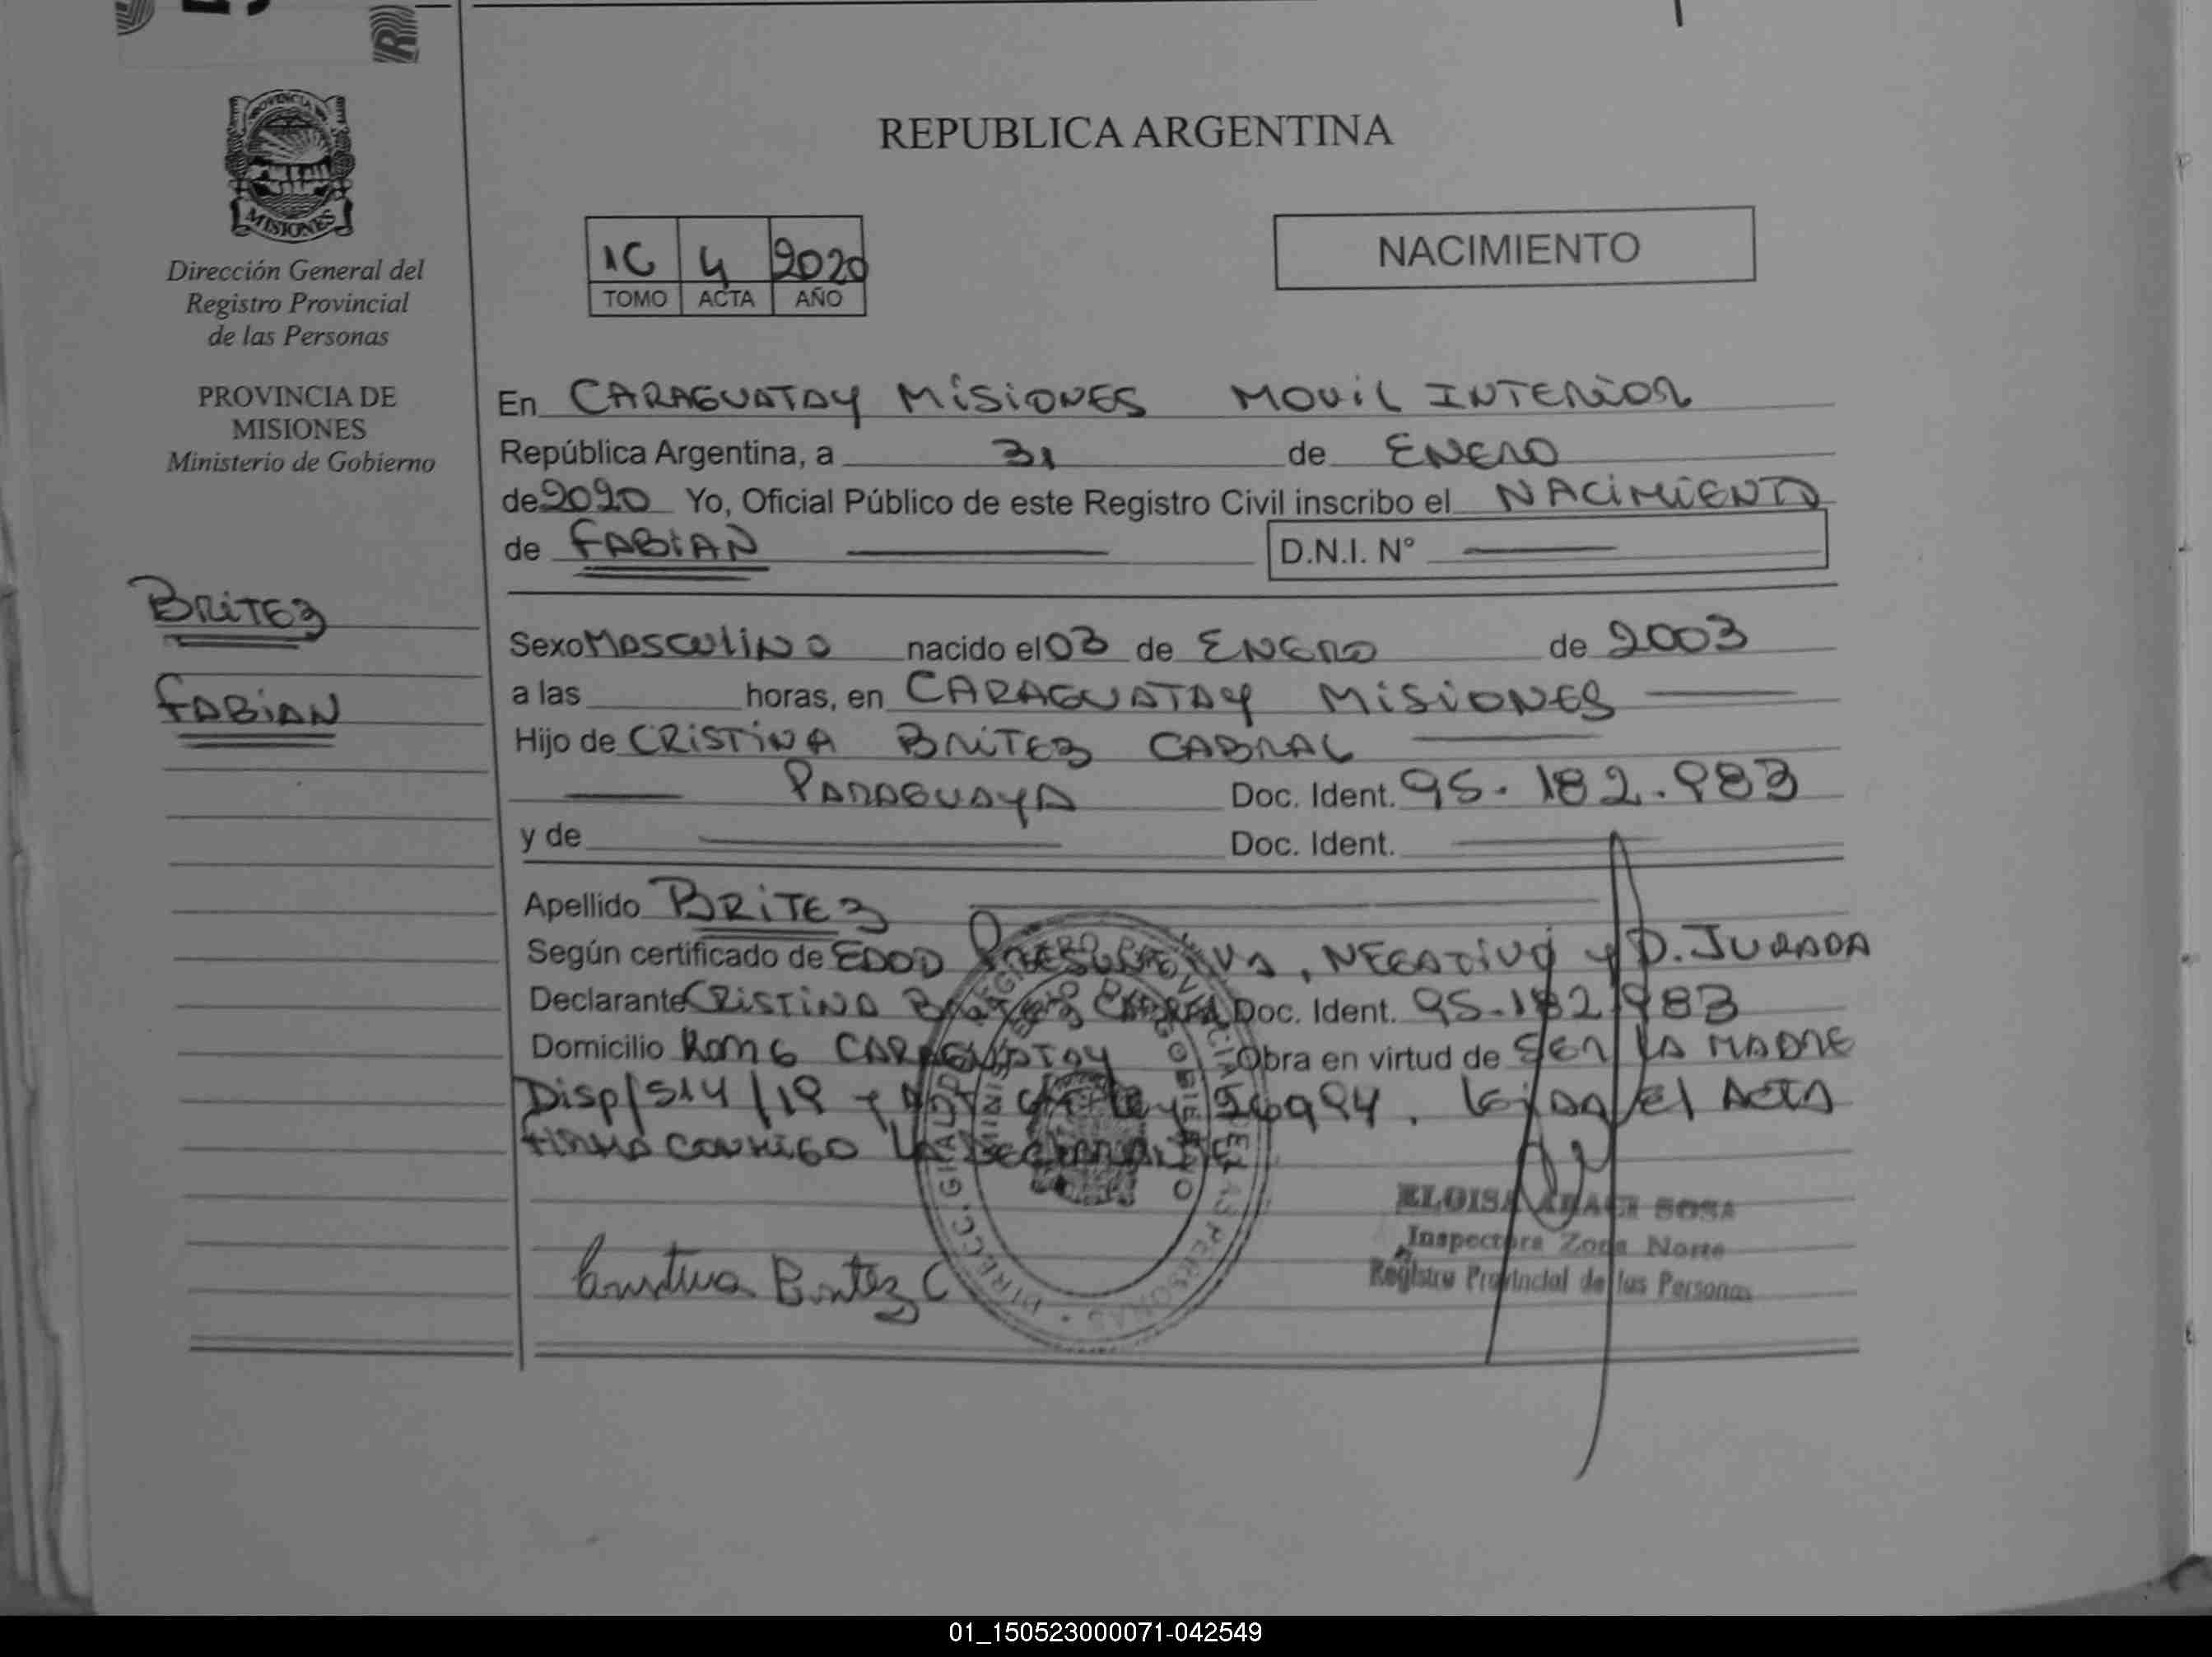 REPUBLICA ARGENTINA
PROVINCIA DE
MISIONES
Dirección General del
Registro Provincial
de las Personas
PROVINCIA DE
MISIONES
Ministerio de Gobierno
BRITEZ
FABIAN
1C 4 2020
TOMO ACTA AÑO
NACIMIENTO
En CARAGUATAY MISIONES MOVIL INTERIOR
República Argentina, a 31 de ENERO
de 2020 Yo, Oficial Público de este Registro Civil inscribo el NACIMIENTO
de FABIAN D.N.I. N°
Sexo MASCULINO nacido el 03 de ENERO de 2003
a las horas, en CARAGUATAY MISIONES
Hijo de CRISTINA BRITEZ CABRAL
PARAGUAYA Doc. Ident. 95.182.983
y de Doc. Ident.
Apellido BRITEZ
Según certificado de EDAD PRESUNTIVA, NEGATIVO y D. JURADA
Declarante CRISTINA BRITEZ CABRAL Doc. Ident. 95.182.983
Domicilio Km 6 CARAGUATAY Obra en virtud de SER LA MADRE
Disp/514/19 26994. Leida el ACTA
FIRMA CONMIGO LA DECLARANTE
Cristina Britez C
ELOISA SOSA
Inspectora Zona Norte
Registro Provincial de las Personas
01_150523000071-042549